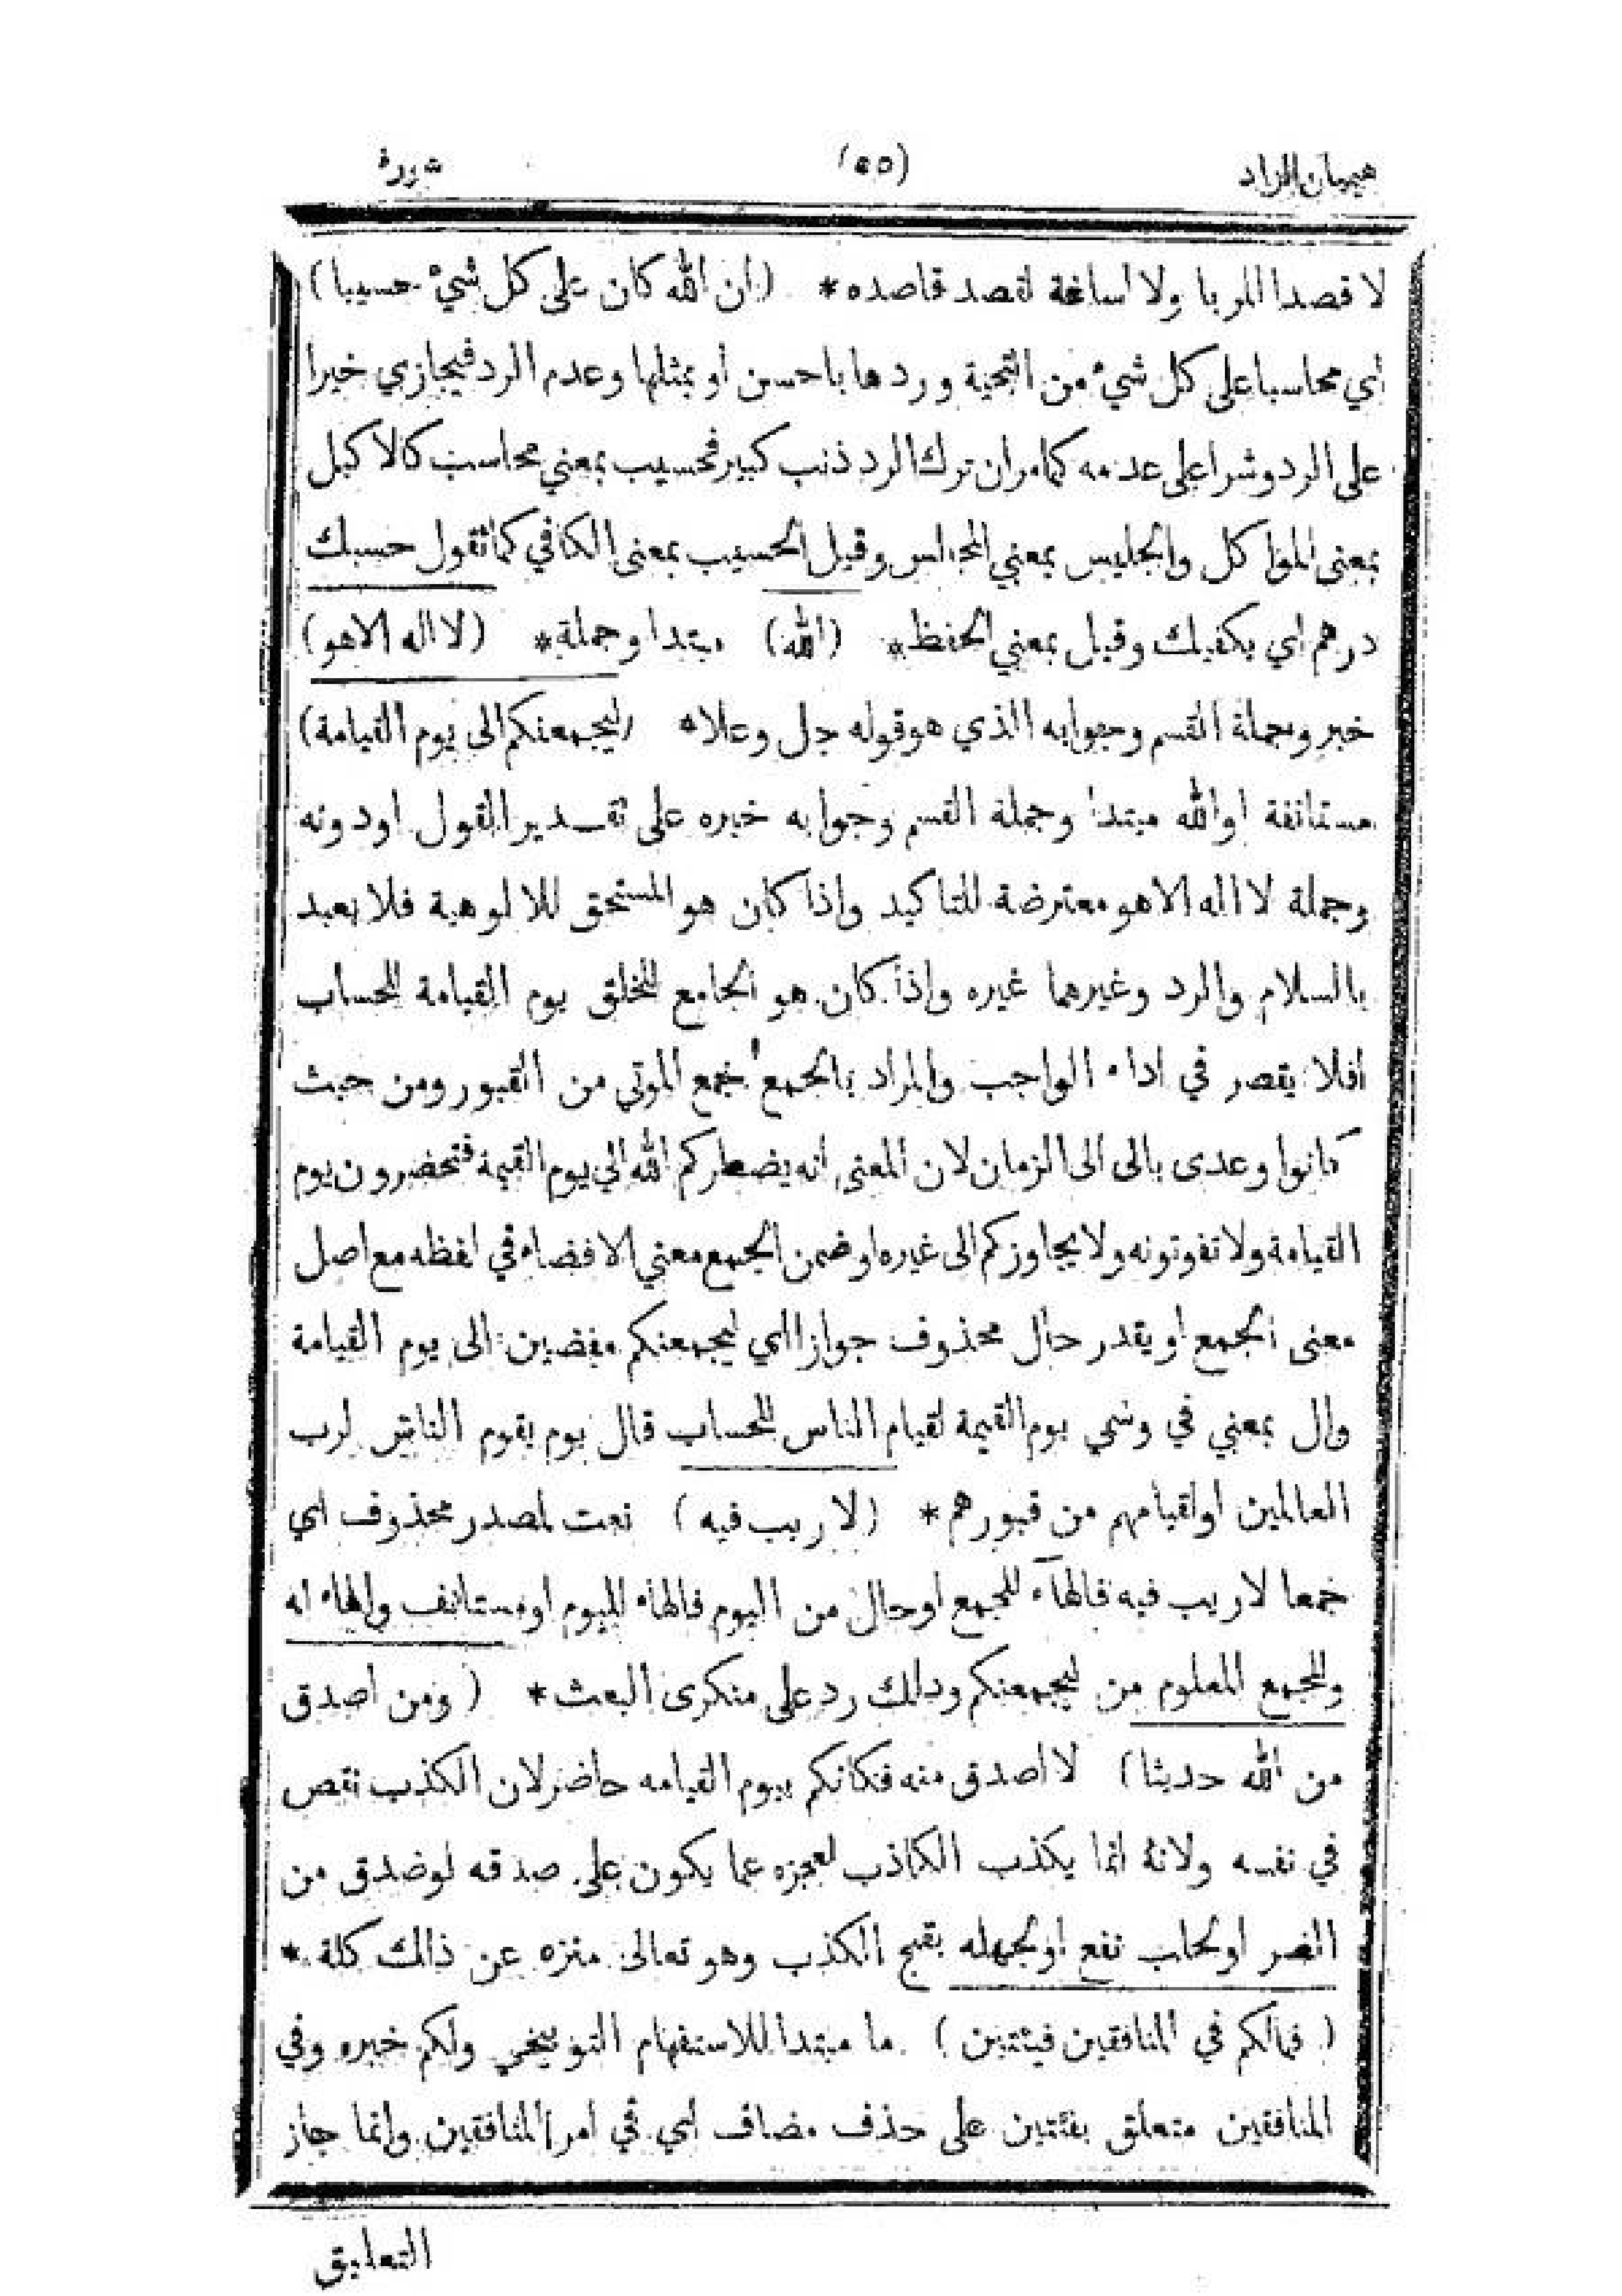 هيميان الزاد (٥٥) سورة
لا قصدا للربا ولا اساغة لقصد قاصده * (ان الله كان على كل شيء حسيبا)
اي محاسبا على كل شيء من التحية وردها باحسن او بمثلها وعدم الرد فيجازي خيرا
على الرد وشرا على عدمه كما مر ان ترك الرد ذنب كبير فحسيب بمعني محاسب كالاكيل
بمعنى المواكل والجليس بمعني المجالس وقيل الحسيب بمعنى الكافي كما تقول حسبك
درهم اي يكفيك وقيل بمعني الحفظ * (الله) مبتدا وجملة * (لا اله الا هو)
خبر وجملة القسم وجوابه الذي هو قوله جل وعلا * (ليجمعنكم الى يوم القيامة)
مستانفة او الله مبتدا وجملة القسم وجوابه خبره على تقدير القول او دونه
وجملة لا اله الا هو معترضة للتاكيد واذا كان هو المستحق للالوهية فلا يعبد
بالسلام والرد وغيرهما غيره واذا كان هو الجامع للخلق يوم القيامة للحساب
افلا يقصر في اداء الواجب والمراد بالجمع جمع الموتي من القبور ومن حيث
كانوا وعدى بالى الى الزمان لان المعنى انه يضطركم الله الي يوم القيمة فتحضرون يوم
القيامة ولا تفوتونه ولا يجاوزكم الى غيره او ضمن الجمع معني الافضاء في لفظه مع اصل
معنى الجمع او يقدر حال محذوف جوازا اي ليجمعنكم مفضين الى يوم القيامة
وال بمعني في وسمي يوم القيمة لقيام الناس للحساب قال يوم يقوم الناس لرب
العالمين او لقيامهم من قبورهم * (لا ريب فيه) نعت لمصدر محذوف اي
جمعا لا ريب فيه فالهآء للجمع او حال من اليوم فالهاء لليوم او مستانف والهاء له
وللجمع المعلوم من ليجمعنكم وذلك رد على منكرى البعث * (ومن اصدق
من الله حديثا) لا اصدق منه فكانكم بيوم القيامه حاضر لان الكذب نقص
في نفسه ولانه انما يكذب الكاذب لعجزه عما يكون على صدقه لو صدق من
الضر او لجلب نفع او لجهله بقبح الكذب وهو تعالى منزه عن ذالك كله *
(فمالكم في المنافقين فيئتين) ما مبتدا للاستفهام التوبيخي ولكم خبره وفي
المنافقين متعلق بفئتين على حذف مضاف اي في امر المنافقين وانما جاز
التعليق